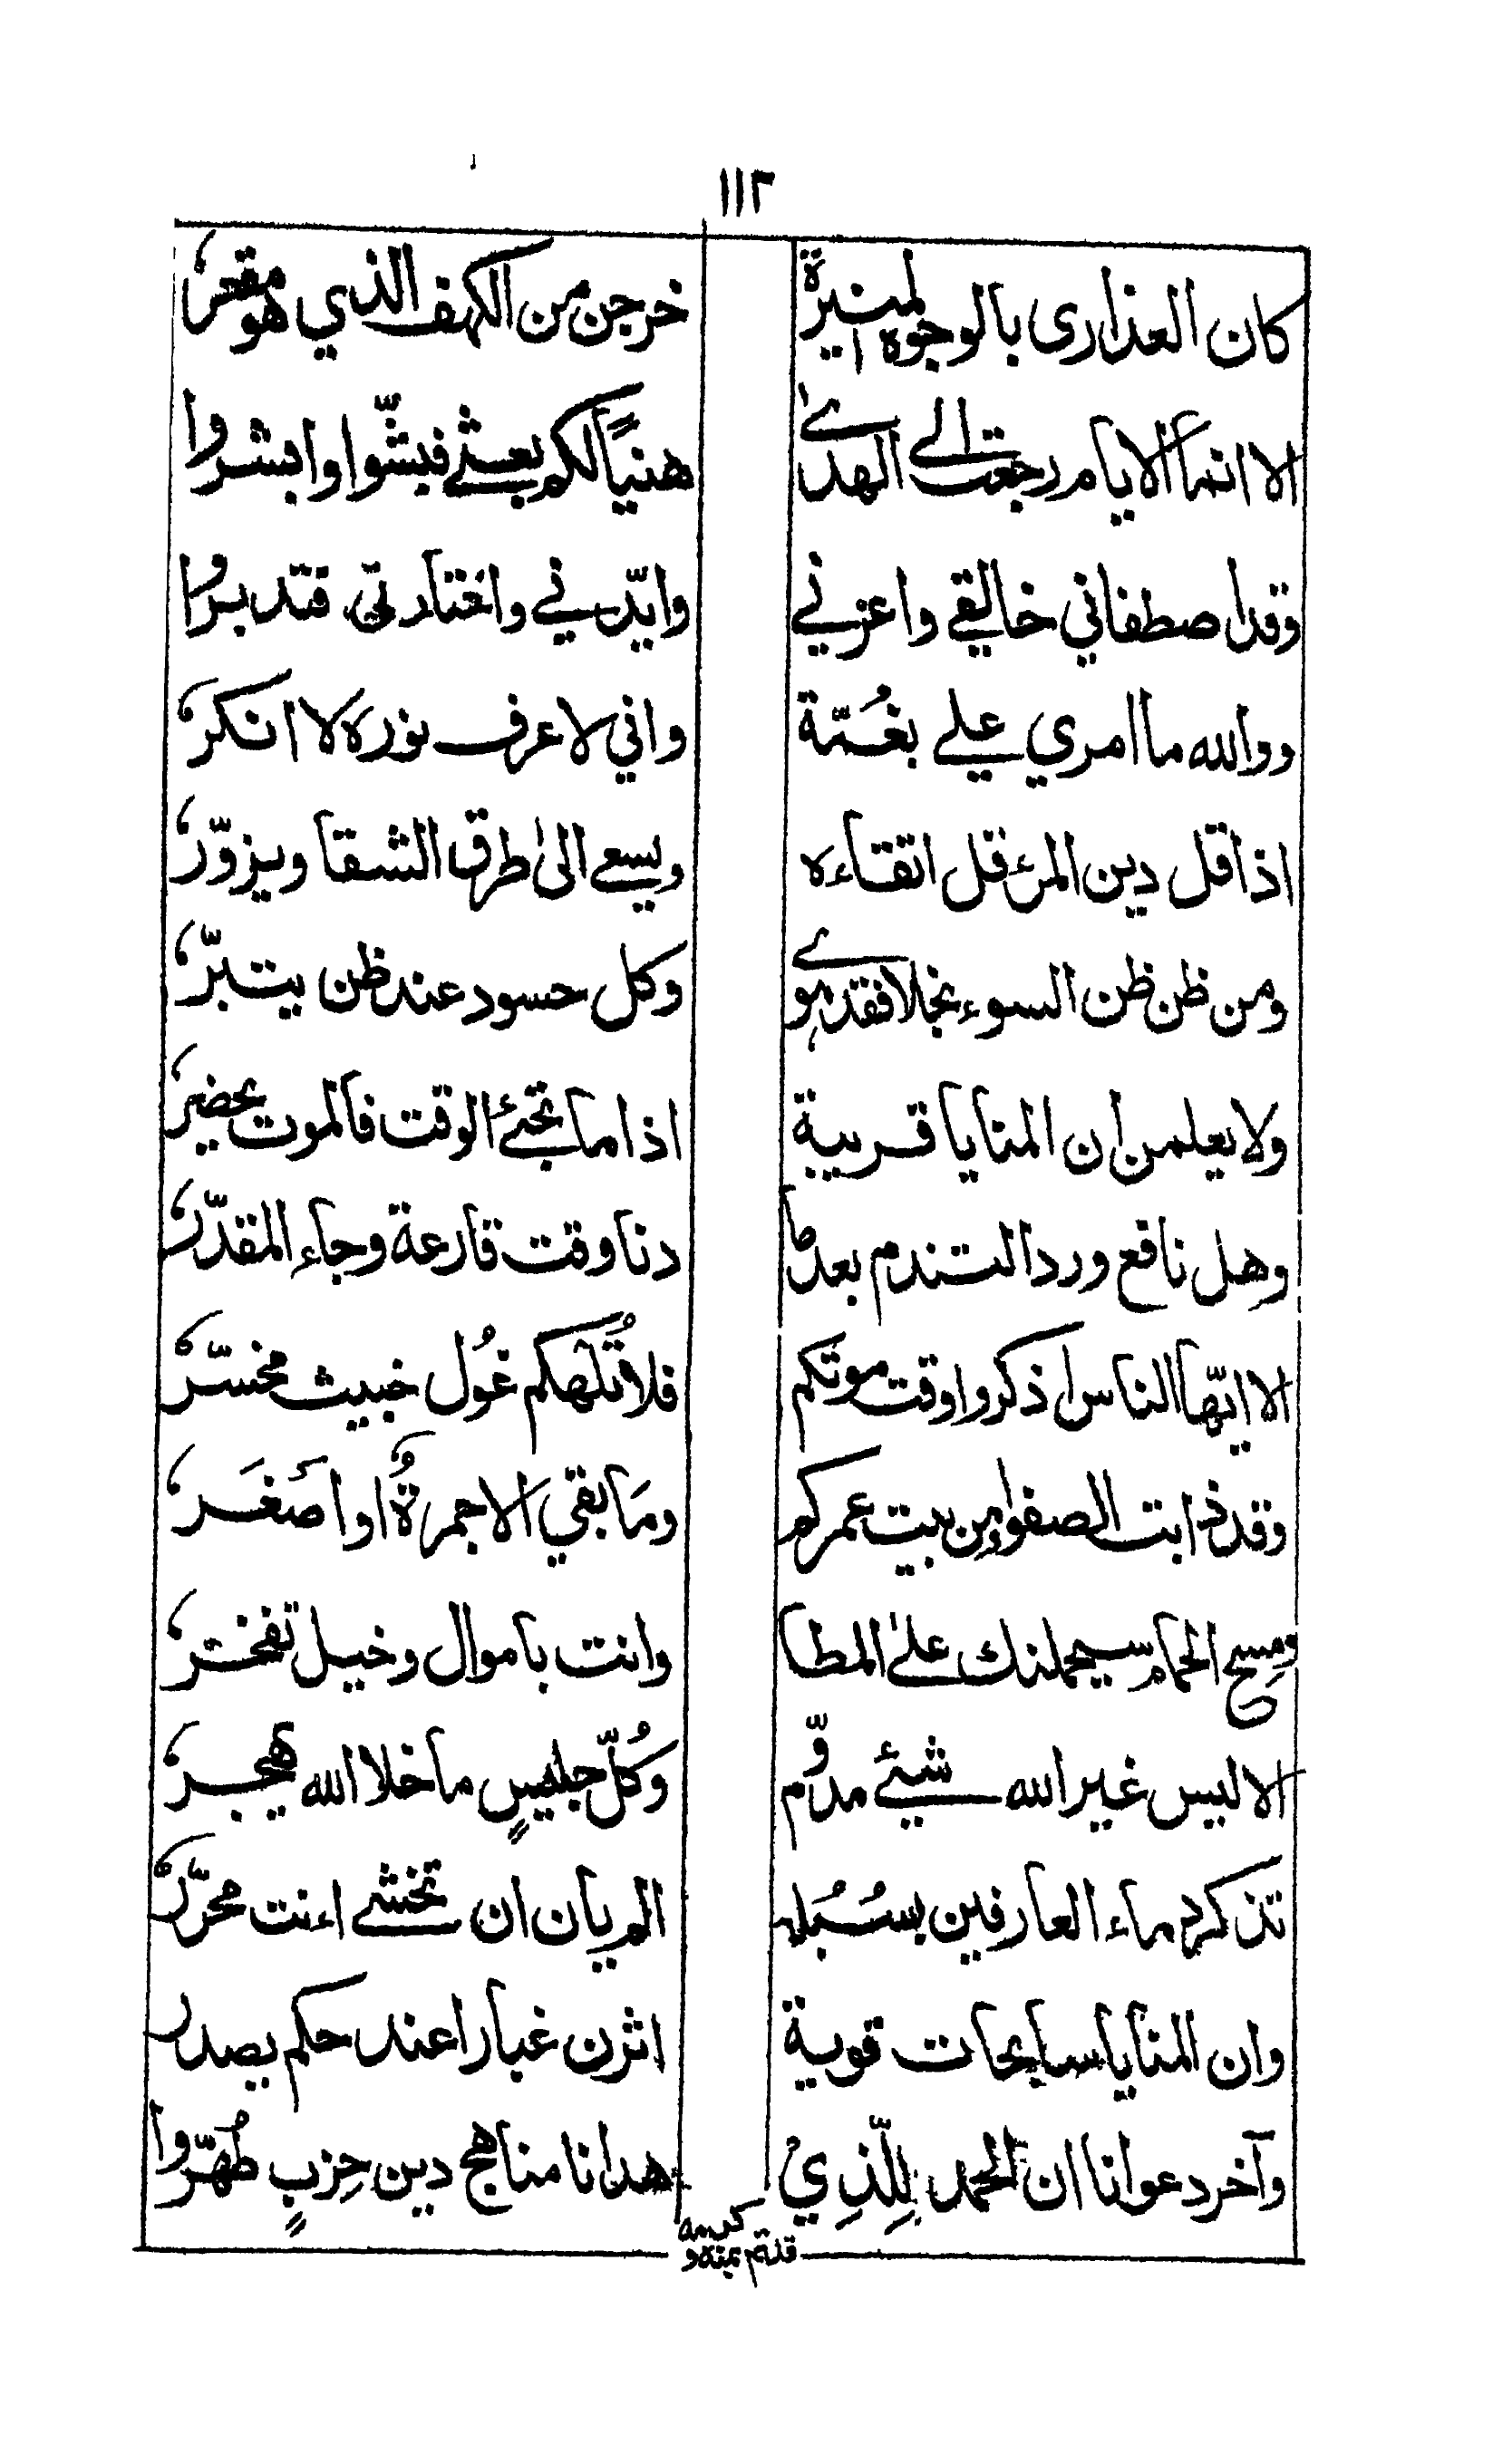 ١١٣
كان العذارى بالوجوه المنيرة خرجن من الكهف الذي هو مقعرُ
الا انما الايام رجعت الى الهدىٰ هنيًا لكم بعثي فبشّوا وابشروا
وقد اصطفاني خالقي واعزني وايّدني واختارني فتدبروا
ووالله ما امري علي بغُمّة واني لاعرف نوره لا انكرُ
اذا قل دين المرء قل اتقاءه ويسعى الىٰ طرق الشقا ويزوّرُ
ومن ظن ظن السوء بخلا فقد هوى وكل حسود عند ظن يتبّرُ
ولا يعلمن ان المنايا قريبة اذا ما تجئ الوقت فالموت يحضرُ
وهل نافع ورد التندم بعد ما دنا وقت قارعة وجاء المقدّرُ
الا ايّها الناس اذكروا وقت موتكم فلا تُلهكم غُول خبيث مخسّرٌ
وقد ذابت الصفواء من بيت عمركم ومَا بقي الا جمرةٌ او اَصغَرُ
ومسح الحمام سيحملنك علىٰ المطا وانت باموال وخيل تفخرُ
الا ليس غير الله شيئ مدوّم وكُلّ جليسٍ ما خلا الله يهجرُ
تذكر دماء العارفين بسُبُله الم يان ان تخشى ءانت محرّرٌ
وان المنايا سابحات قوية اثرن غبارا عند حكم يصدر
وآخر دعوانا ان الحمد للِّذِيْ هدانا مناهج دين حِزبٍ طُهّروا